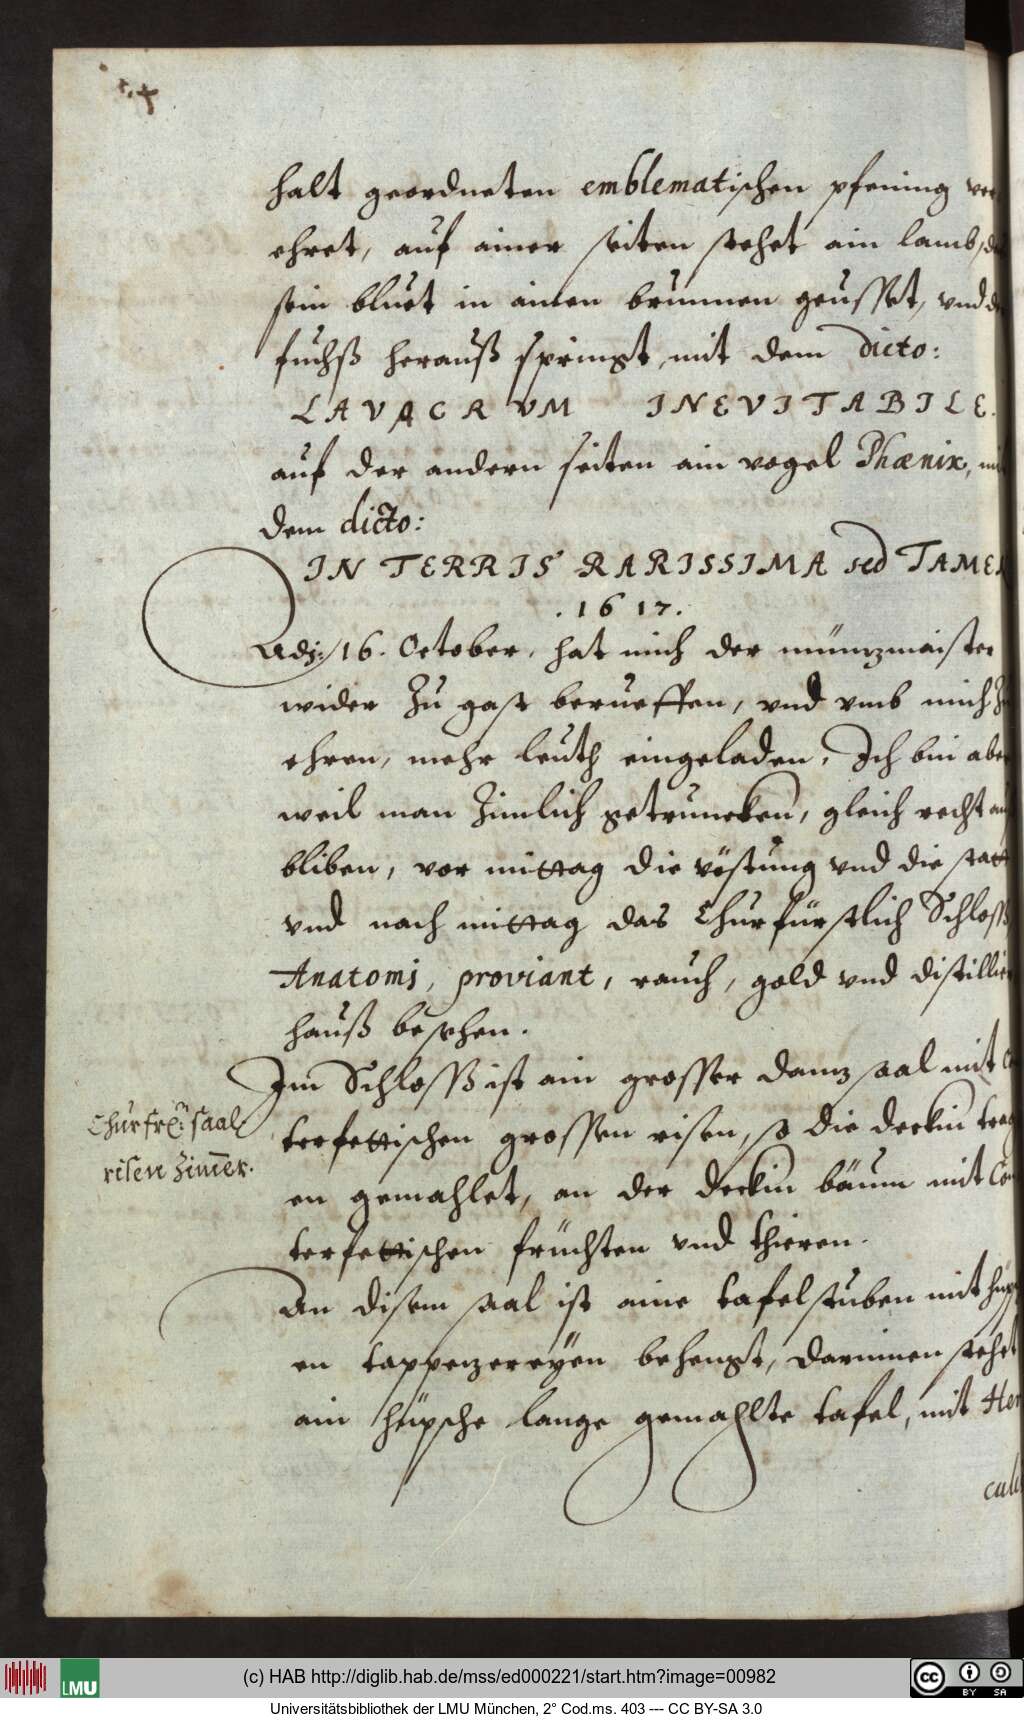 halt geordneten emblematischen pfening ver
ehret, auf ainer seiten stehet ain lamb, d
sein bluet in ainen brunnen geusset, vnd d
fuchß herauß springt, mit dem dicto:
LAVACRVM INEVITABILE.
auf der andern seiten ain vogel Phœnix, mi
dem dicto:
IN TERRIS RARISSIMA sed TAMEN
.1617.
Adj: 16. October, hat mich der müntzmaister
wider zu gast berueffen, vnd vmb mich z
ehren, mehr leuth eingeladen, Ich bin aber
weil man zimlich getruncken, gleich recht au
bliben, vor mittag die vöstung vnd die statt
vnd nach mittag das Churfürstlich Schloss
Anatomj, proviant, rauch, gold vnd distillie
hauß besehen.
Im Schloss ist ain grosser dantz saal mit
Churfrl: saal
terfettischen grossen risen, so die deckin trag
risen zimer.
en gemahlet, an der deckin bäum mit Con
terfettischen früchten vnd thieren.
An disem saal ist aine tafelstuben mit hüps
en tappezereyen behengt, darinnen stehet
ain hüpsche lange gemahlte tafel, mit Her
cul
(c) HAB http://diglib.hab.de/mss/ed000221/start.htm?image=00982
LMU
cc BY SA
Universitätsbibliothek der LMU München, 2° Cod.ms. 403 --- CC BY-SA 3.0